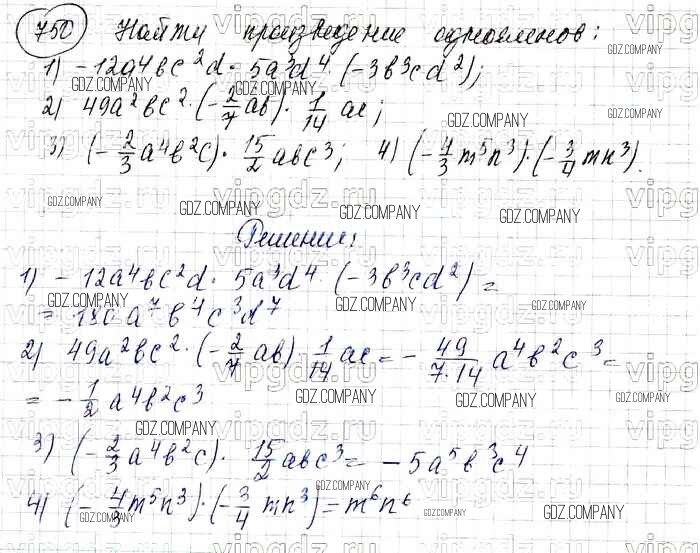 750 Найти произведение одночленов:
1) -12a⁴bc²d · 5a³d⁴ · (-3b³cd²);
2) 49a²bc² · (-2/7 ab) · 1/14 ac;
3) (-2/3 a⁴b²c) · 15/2 abc³; 4) (-4/3 m⁵n³) · (-3/4 mn³).
Решение:
1) -12a⁴bc²d · 5a³d⁴ · (-3b³cd²) =
= 180a⁷b⁴c³d⁷
2) 49a²bc² · (-2/7 ab) 1/14 ac = - 49/7·14 a⁴b²c³ =
= -1/2 a⁴b²c³
3) (-2/3 a⁴b²c) · 15/2 abc³ = -5a⁵b³c⁴
4) (-4/3 m⁵n³) · (-3/4 mn³) = m⁶n⁶
vipgdz.ru
GDZ.COMPANY